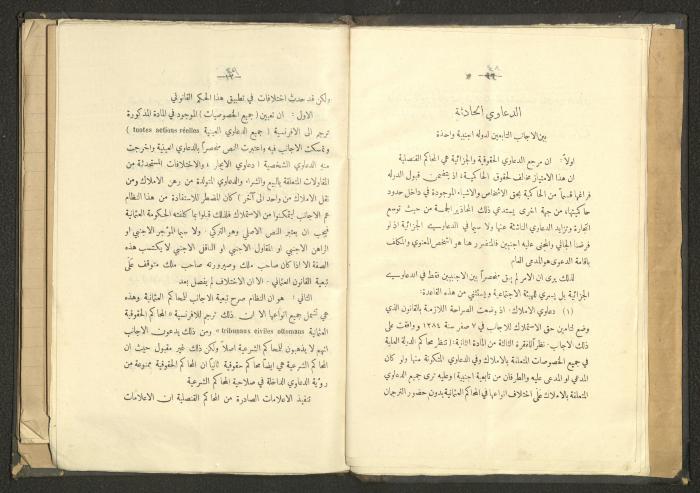 الدعاوي الحادثة
بين الاجانب التابعين لدوله اجنبية واحدة
اولاً: ان مرجع الدعاوي الحقوقية والجزائية هي المحاكم القنصلية
ان هذا الامتياز مخالف لحقوق الحاكمية اذ يتضمن قبول الدوله
فراغها قسماً من الحاكمية بحق الاشخاص والاشياء الموجودة في داخل حدود
حاكميتها، من جهة اخرى يستدعي ذلك المحاذير الجمة من حيث توسع
التجارة وتزايد الدعاوي الناشئة عنها ولا سيما في الدعاوي الجزائية اذ لو
فرضنا الجاني والمجنى عليه اجنبيين فالمتضرر هنا هو الشخص المعنوي والمكلف
باقامة الدعوى هو المدعي العام
لذلك يرى ان الامر لم يبق منحصراً بين الاجنبيين فقط في الدعاوي
الجزائية بل يسري للهيئة الاجتماعية ويستثنى من هذه القاعدة:
(١) دعاوي الاملاك: اذ وضعت الصراحة اللازمة بالقانون الذي
وضع لتامين حق الاستملاك للاجانب في ٧ صفر سنة ١٢٨٤ ووافقت على
ذلك الاجانب. نظراً للفقرة الثالثة من المادة الثانية: (تنظر محاكم الدولة العلية
في جميع الخصوصات المتعلقة بالاملاك وفي الدعاوي المتكونة منها ولو كان
المدعي او المدعى عليه والطرفان من تابعية اجنبية) وعليه ترى جميع الدعاوي
المتعلقة بالاملاك على اختلاف انواعها في المحاكم العثمانية بدون حضور الترجمان
ولكن قد حدث اختلافات في تطبيق هذا الحكم القانوني
الاول: ان تعبير (جميع الخصوصيات) الموجود في المادة المذكورة
ترجم الى الافرنسية (جميع الدعاوي العينية toutes actions réelles)
وتمسكت الاجانب فيه واعتبرت النص منحصراً بالدعاوي العينية واخرجت
منه الدعاوي الشخصية (دعاوي الايجار والاختلافات المستحدثة من
المقاولات المتعلقة بالبيع والشراء والدعاوي المتولدة من رهن الاملاك ومن
نقل الاملاك من واحد الى آخر) كان المضطر للاستفادة من هذا النظام
هم الاجانب ليتمكنوا من الاستملاك فلذلك قبلوا بما كلفته الحكومة العثمانية
فيجب ان يعتبر النص الاصلي وهو التركي. ولا سيما المؤجر الاجنبي او
الراهن الاجنبي او المقاول الاجنبي او الناقل الاجنبي لا يكتسب هذه
الصفة الا اذا كان صاحب ملك وصيرورته صاحب ملك متوقف على
تبعية القانون العثماني. الا ان الاختلاف لم يفصل بعد
الثاني: هو ان النظام صرح تبعية الاجانب للمحاكم العثمانية وهذه
هي تشمل جميع انواعها الا ان ذلك ترجم للافرنسية «المحاكم الحقوقية
العثمانية tribunaux civiles ottomans» ومن ذلك يدعون الاجانب
انهم لا يذهبون للمحاكم الشرعية اصلاً ولكن ذلك غير مقبول حيث ان
المحاكم الشرعية هي ايضاً محاكم حقوقية ثانياً ان المحاكم الحقوقية ممنوعة من
رؤية الدعاوي الداخلة في صلاحية المحاكم الشرعية
تنفيذ الاعلامات الصادرة من المحاكم القنصلية ان الاعلامات